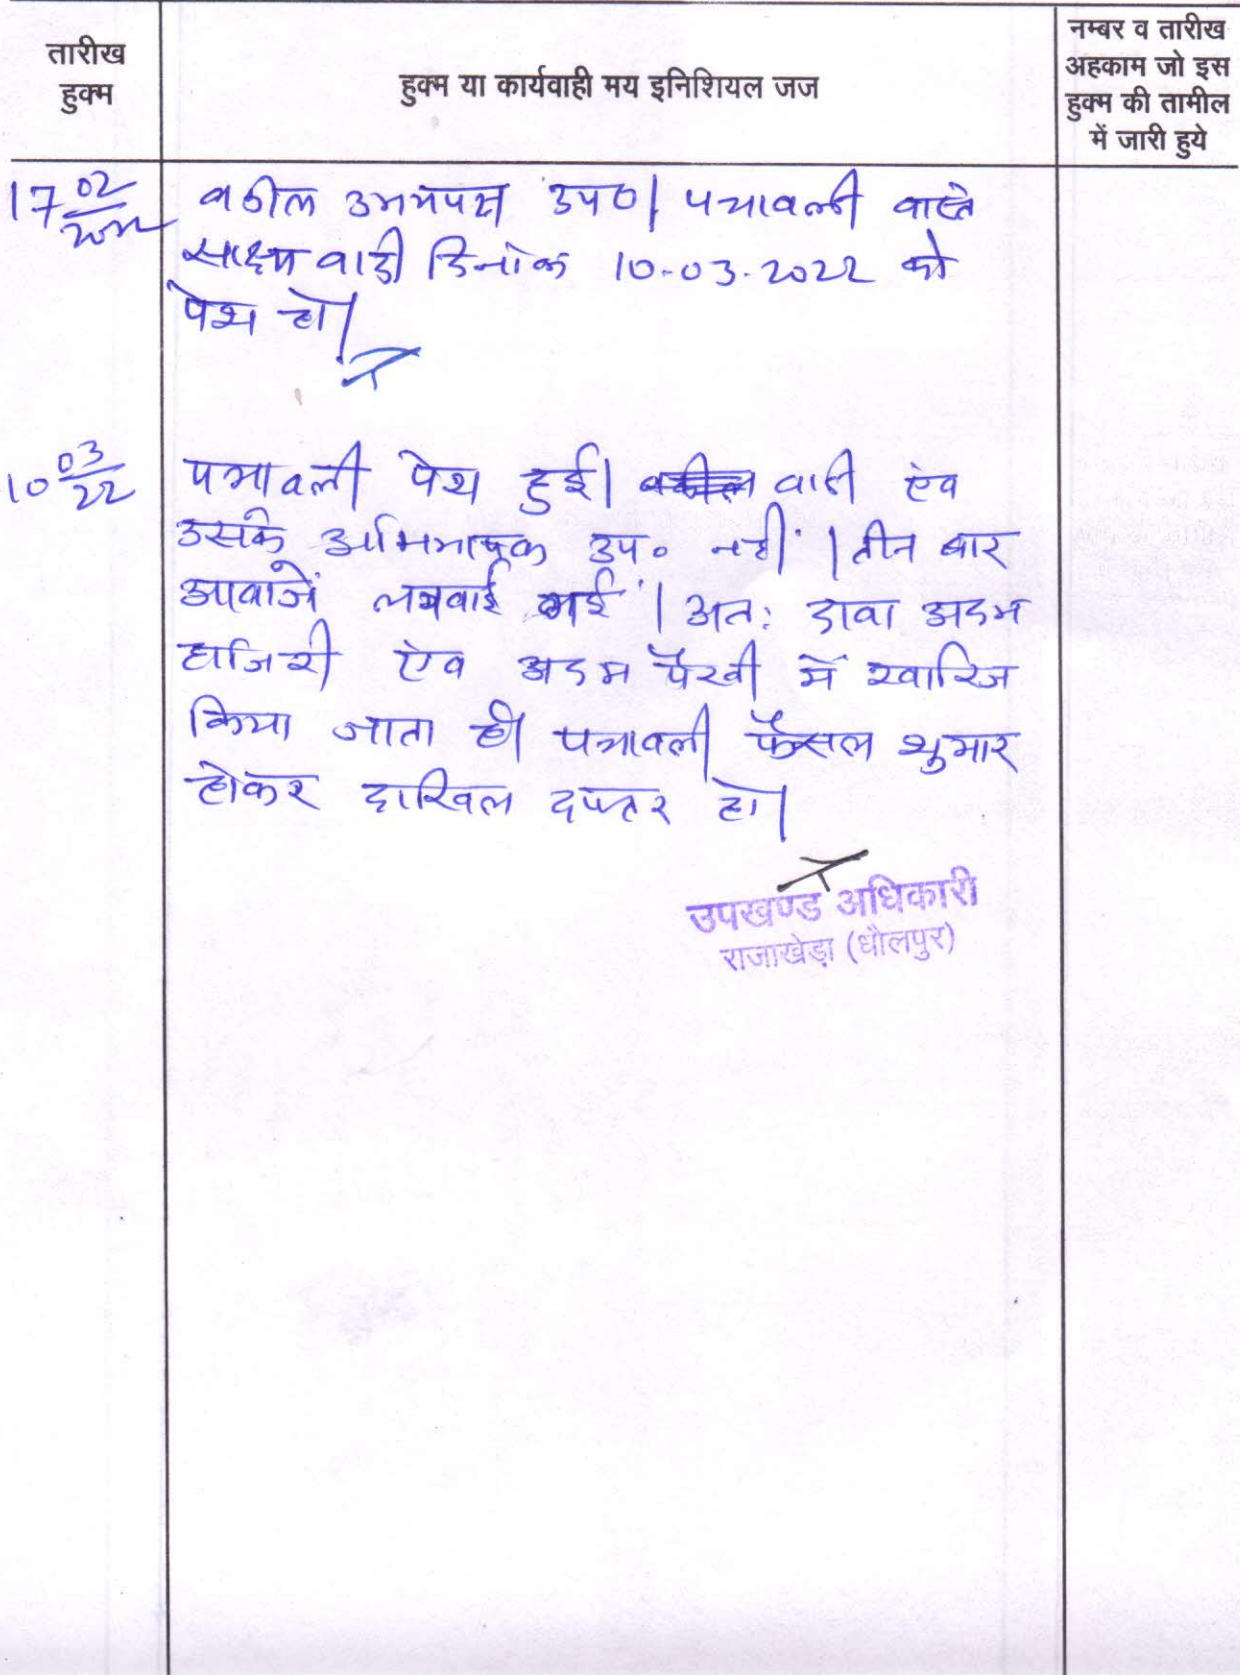 तारीख
हुक्म
हुक्म या कार्यवाही मय इनिशियल जज
नम्बर व तारीख
अहकाम जो इस
हुक्म की तामील
में जारी हुये
17 02/2022 वकील उभयपक्ष उप०। पत्रावली वास्ते
साक्ष्य वादी दिनांक 10-03-2022 को
पेश हो।
10 03/22 पत्रावली पेश हुई। वकील वादी एंव
उसके अभिभाषक उप० नहीं। तीन बार
आवाजें लगवाई गई। अत: दावा अदम
हाजिरी ऐव अदम पैरवी में खारिज
किया जाता है। पत्रावली फैसल शुमार
होकर दाखिल दफ्तर हो।
उपखण्ड अधिकारी
राजाखेड़ा (धौलपुर)